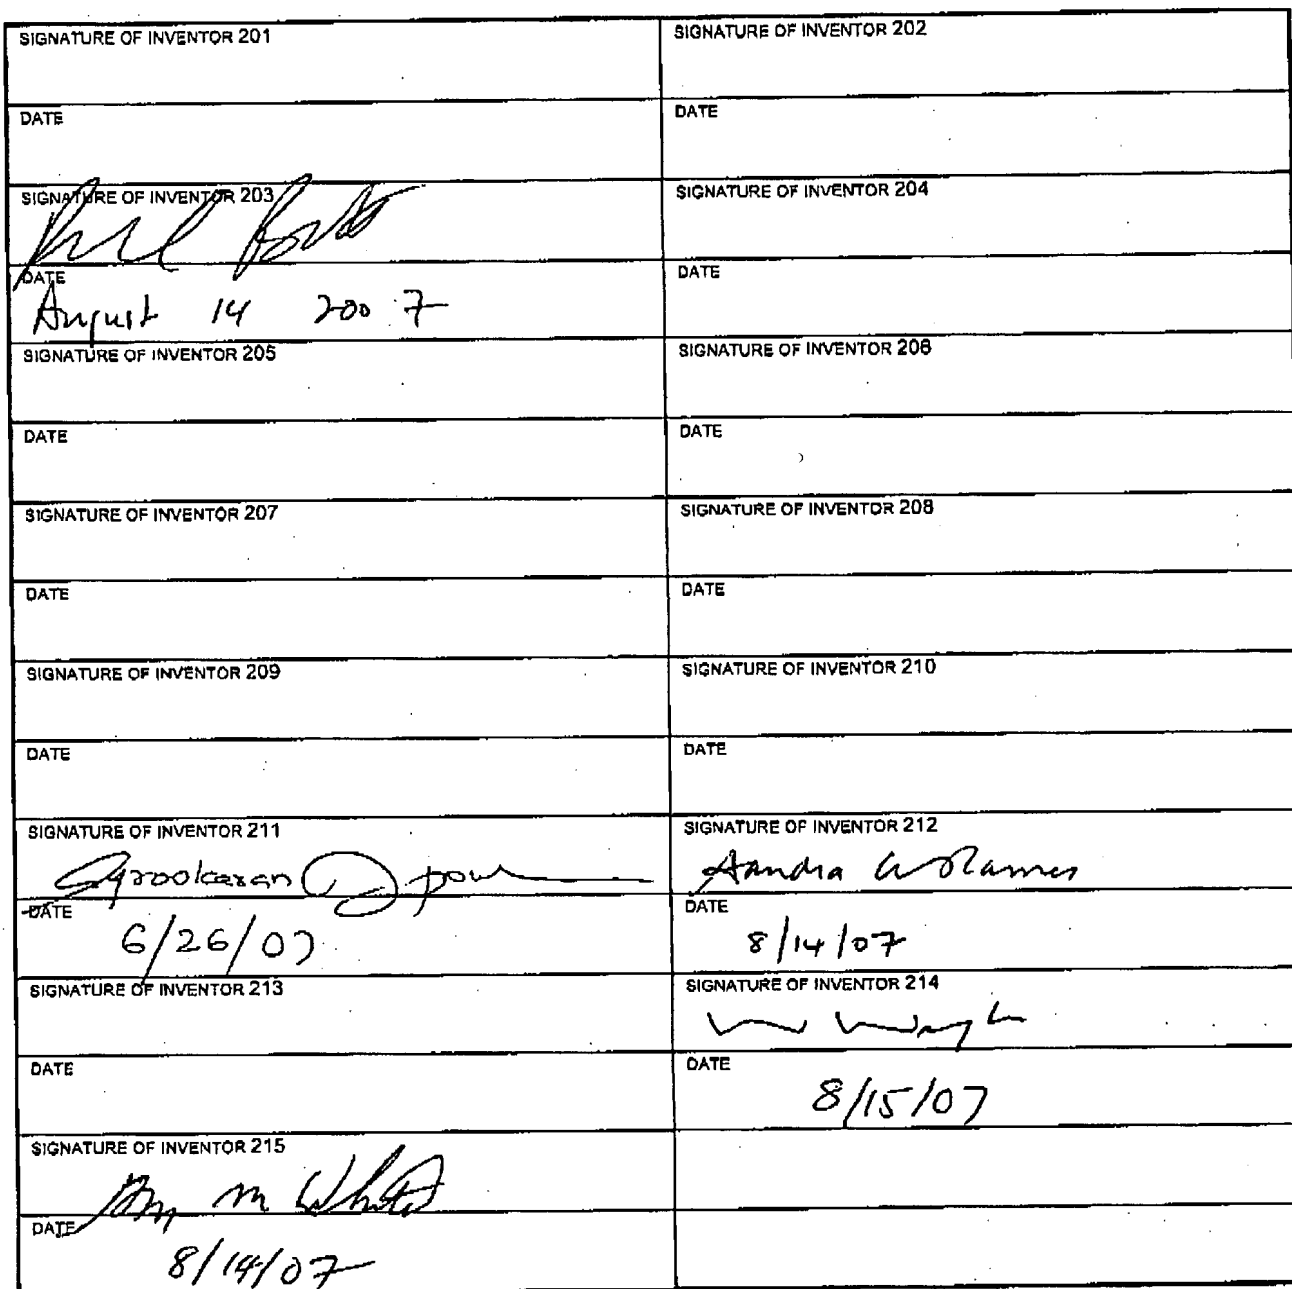 SIGNATURE OF INVENTOR 201
SIGNATURE OF INVENTOR 202
DATE
DATE
SIGNATURE OF INVENTOR 203
SIGNATURE OF INVENTOR 204
DATE
August 14 2007
DATE
SIGNATURE OF INVENTOR 205
SIGNATURE OF INVENTOR 206
DATE
DATE
SIGNATURE OF INVENTOR 207
SIGNATURE OF INVENTOR 208
DATE
DATE
SIGNATURE OF INVENTOR 209
SIGNATURE OF INVENTOR 210
DATE
DATE
SIGNATURE OF INVENTOR 211
SIGNATURE OF INVENTOR 212
DATE
6/26/07
DATE
8/14/07
SIGNATURE OF INVENTOR 213
SIGNATURE OF INVENTOR 214
DATE
DATE
8/15/07
SIGNATURE OF INVENTOR 215
DATE
8/14/07